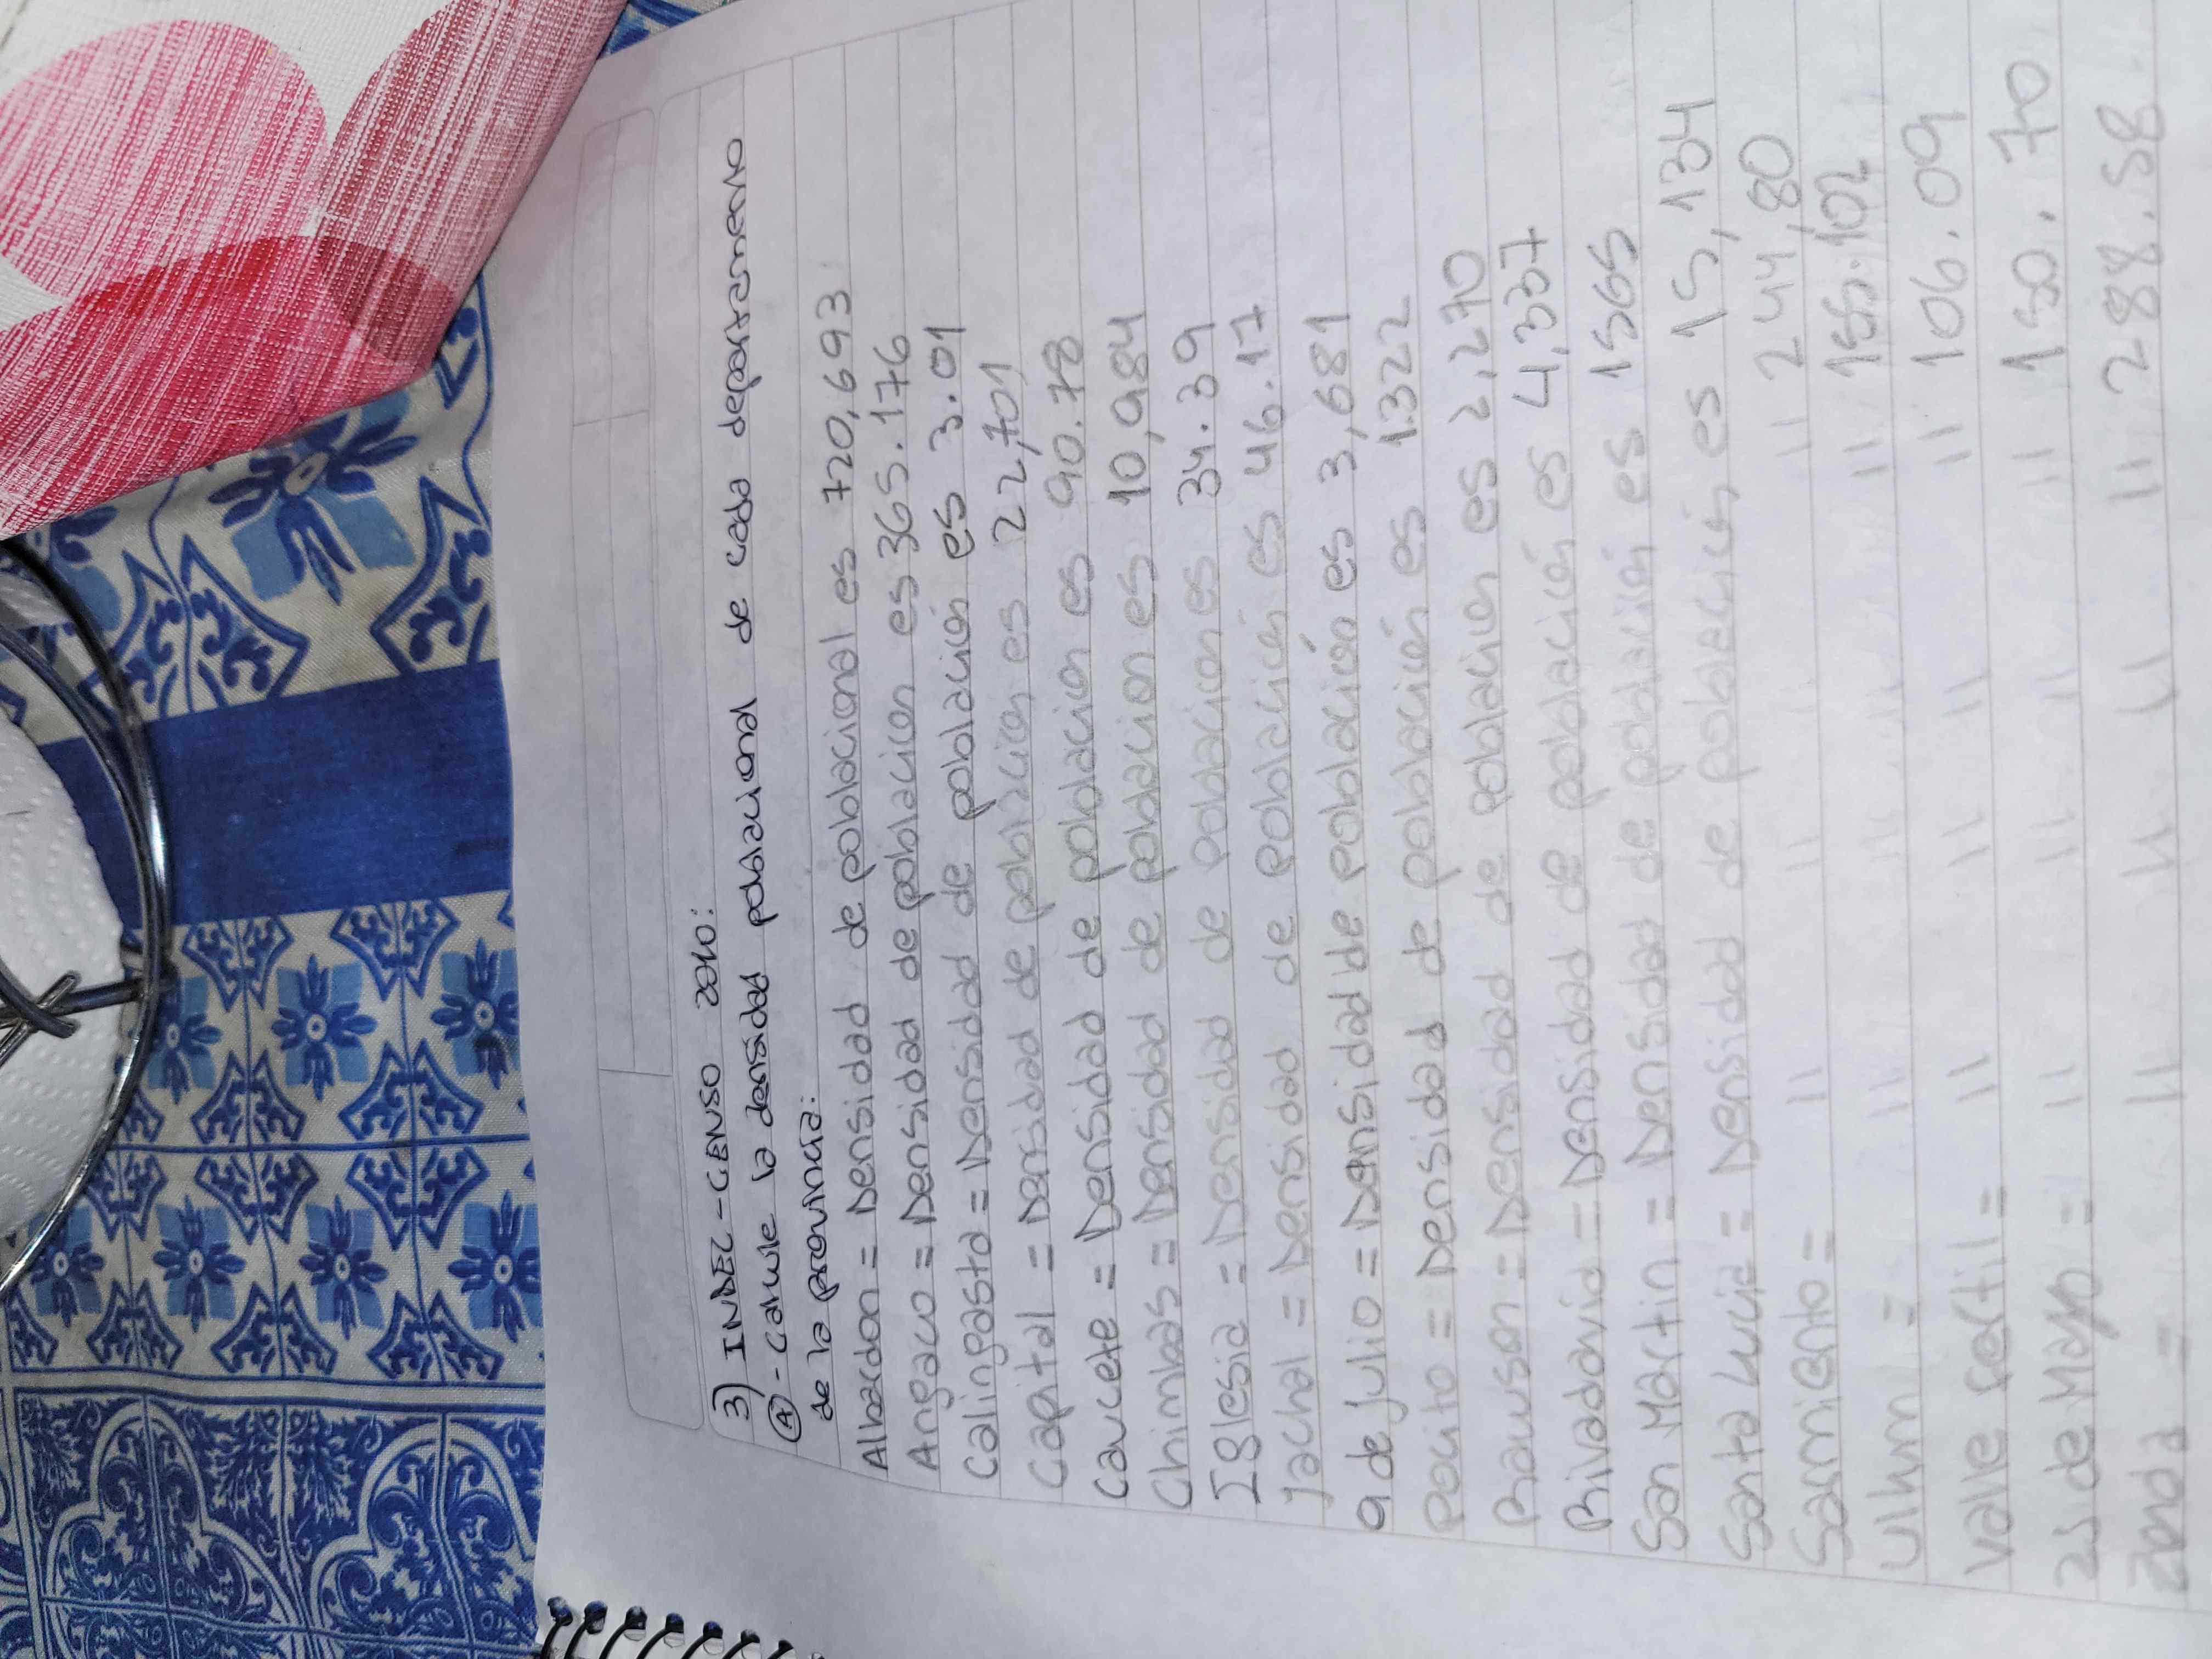 3) INDEC - CENSO 2010:
(A) - Calcule la densidad poblacional de cada departamento
de la provincia:
Albardon = Densidad de poblacional es 720,693.
Angaco = Densidad de poblacion es 365.176
Calingasta = Densidad de población es 3.01
Capital = Densidad de poblacion es 22,701
Caucete = Densidad de poblacion es 90.78
Chimbas = Densidad de poblacion es 10,984
Iglesia = Densidad de poblacion es 34.39
Jachal = Densidad de población es 46.17
9 de Julio = Densidad de población es 3,681
Pocito = Densidad de población es 1.322
Rawson = Densidad de poblacion es 2,270
Rivadavia = Densidad de población es 4,337
San Martin = Densidad de población es 1565
Santa Lucia = Densidad de población, es 15,134
Sarmiento = " " " 244,80
Ulhum = " " " " 155.102
Valle Fertil = " " " " 106.09
25 de Mayo = " " " " 150.70
Zonda = " " " " 288.58.